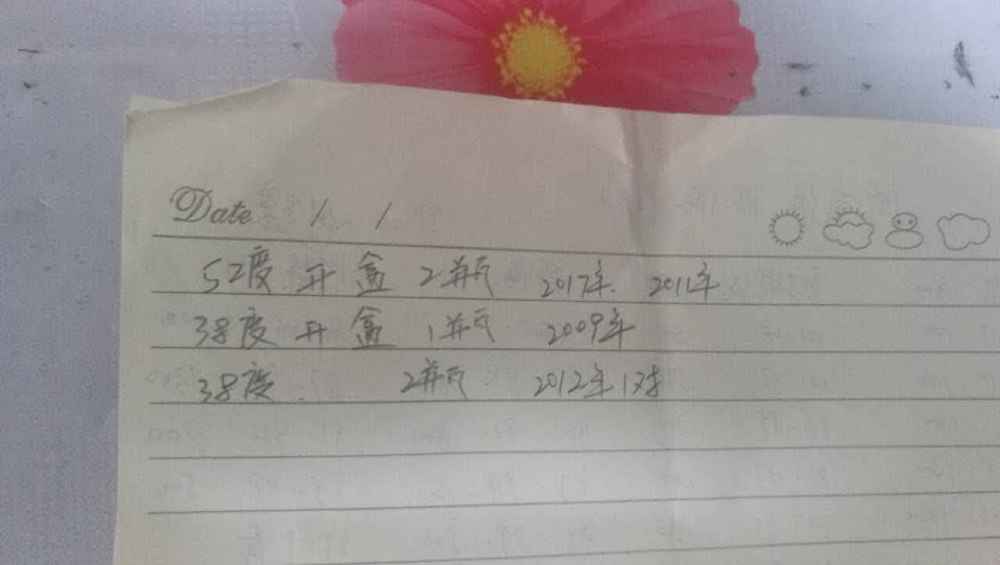 Date / /
52度 开 盒 2瓶 2017年. 2011年
38度 开 盒 1瓶 2009年
38度. 2瓶 2012年1对